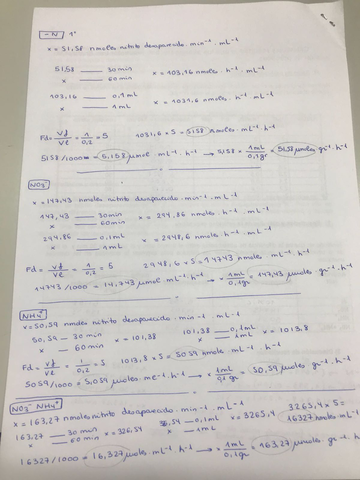 -N 1º
x = 51,58 nmoles nitrito desaparecido. min⁻¹. mL⁻¹
51,58 —— 30 min
x —— 60 min x = 103,16 nmoles. h⁻¹ mL⁻¹
103,16 —— 0,1 mL
x —— 1 mL x = 1031,6 nmoles. h⁻¹ mL⁻¹
Fd = Vf/Ve = 1/0,2 = 5 1031,6 × 5 = 5158 nmoles. mL⁻¹. h⁻¹
5158/1000 = 5,158 µmol. mL⁻¹. h⁻¹ → 5,158 × 1mL/0,1gr = 51,58 µmoles gr⁻¹ h⁻¹
NO₃⁻
x = 147,43 nmoles nitrito desaparecido. min⁻¹. mL⁻¹
147,43 —— 30 min
x —— 60 min x = 294,86 nmoles. h⁻¹. mL⁻¹
294,86 —— 0,1 mL
x —— 1 mL x = 2948,6 nmoles. h⁻¹. mL⁻¹
Fd = Vf/Ve = 1/0,2 = 5 2948,6 × 5 = 14743 nmoles. mL⁻¹. h⁻¹
14743/1000 = 14,743 µmol mL⁻¹. h⁻¹ → × 1mL/0,1gr = 147,43 µmoles gr⁻¹. h⁻¹
NH₄⁺
x = 50,59 nmoles nitrito desaparecido. min⁻¹. mL⁻¹
50,59 — 30 min
x — 60 min x = 101,38 101,38 — 0,1 mL
x — 1 mL x = 1013,8
Fd = Vf/Ve = 1/0,2 = 5 1013,8 × 5 = 5059 nmoles. mL⁻¹. h⁻¹
5059/1000 = 5,059 µmoles. mL⁻¹. h⁻¹ → × 1mL/0,1 gr = 50,59 µmoles. gr⁻¹. h⁻¹
NO₃⁻ NH₄⁺
x = 163,27 nmoles nitrito desaparecido. min⁻¹. mL⁻¹
163,27 — 30 min
x — 60 min x = 326,54 — 0,1 mL
x — 1 mL x = 3265,4 3265,4 × 5 =
16327 nmoles. mL⁻¹
16327/1000 = 16,327 µmoles. mL⁻¹. h⁻¹ → × 1mL/0,1gr = 163,27 µmoles. gr⁻¹. h